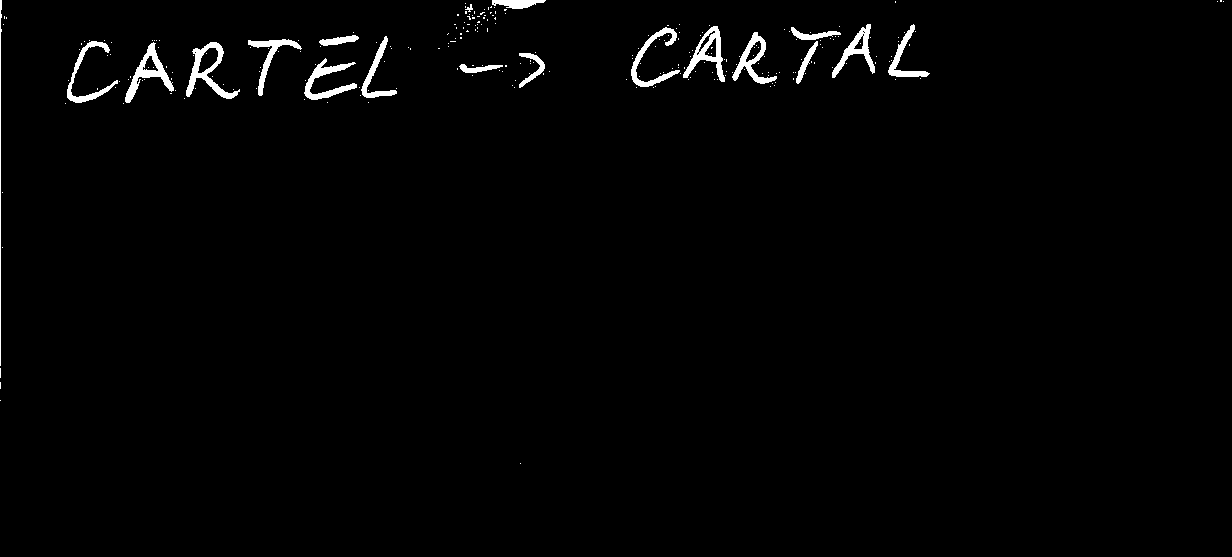 CARTEL -> CARTAL